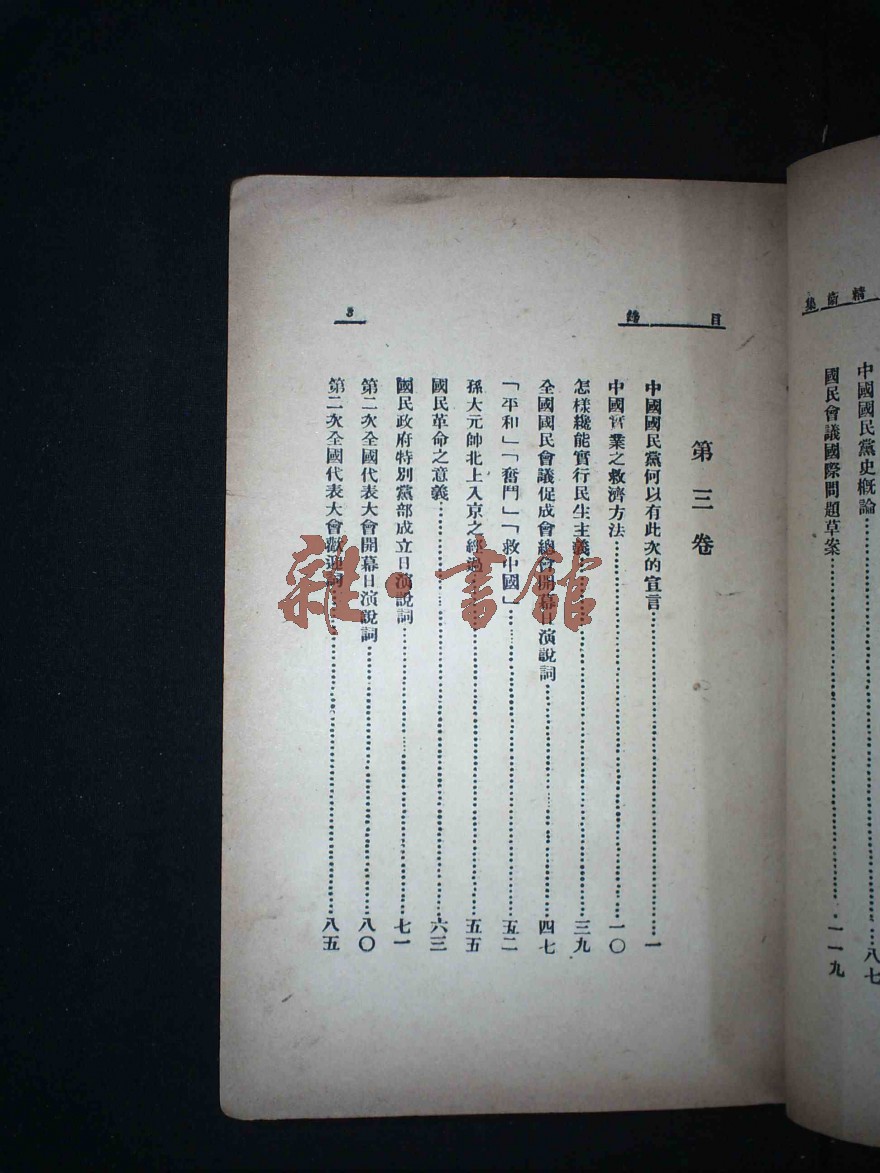 集衛精
中國國民黨史概論……八七
國民會議國際問題草案……一一九
目錄
3
第三卷
中國國民黨何以有此次的宣言……一
中國實業之救濟方法……一〇
怎樣纔能實行民生主義……三九
全國國民會議促成會總會開幕日演說詞……四七
「平和」「奮鬥」「救中國」……五二
孫大元帥北上入京之經過……五五
國民革命之意義……六三
國民政府特別黨部成立日演說詞……七一
第二次全國代表大會開幕日演說詞……八〇
第二次全國代表大會歡迎詞……八五
雜·書館